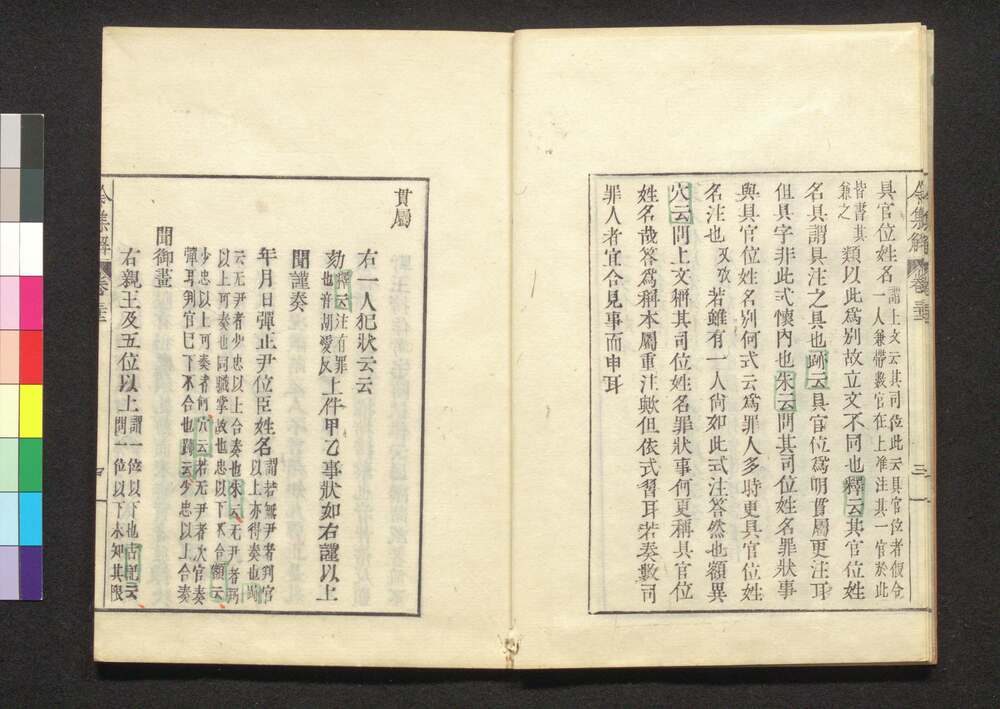 令集解 卷三十二 三
具官位姓名謂上文云其司位此云具官位者假令
一人兼帶數官在上准注其一官於此
皆書其
兼之類以此爲別故立文不同也釋云其官位姓
名具謂具注之具也跡云具官位爲明貫属更注耳
但具字非此式懷內也朱云問其司位姓名罪狀事
與具官位姓名別何式云爲罪人多時更具官位姓
名注也又攷若雖有一人尙如此式注答然也額異
穴云問上文稱其司位姓名罪狀事何更稱具官位
姓名哉答爲稱本属重注歟但依式習耳若奏數司
罪人者宜合見事而申耳
貫屬
右一人犯狀云云
劾釋云注有罪
也音胡愛反上件甲乙事狀如右謹以上
聞謹奏
年月日彈正尹位臣姓名謂若無尹者判官
以上亦得奏也跡
云无尹者少忠以上合奏也朱云无尹者弼
以上可奏也同職掌故也忠以下不合額云
少忠以上可奏者何穴云若无尹者次官奏
彈耳判官已下不合也跡云少忠以上合奏
聞御畫
右親王及五位以上謂一位以下也古記云
問一位以下未知其限
令集解 卷三十二 四